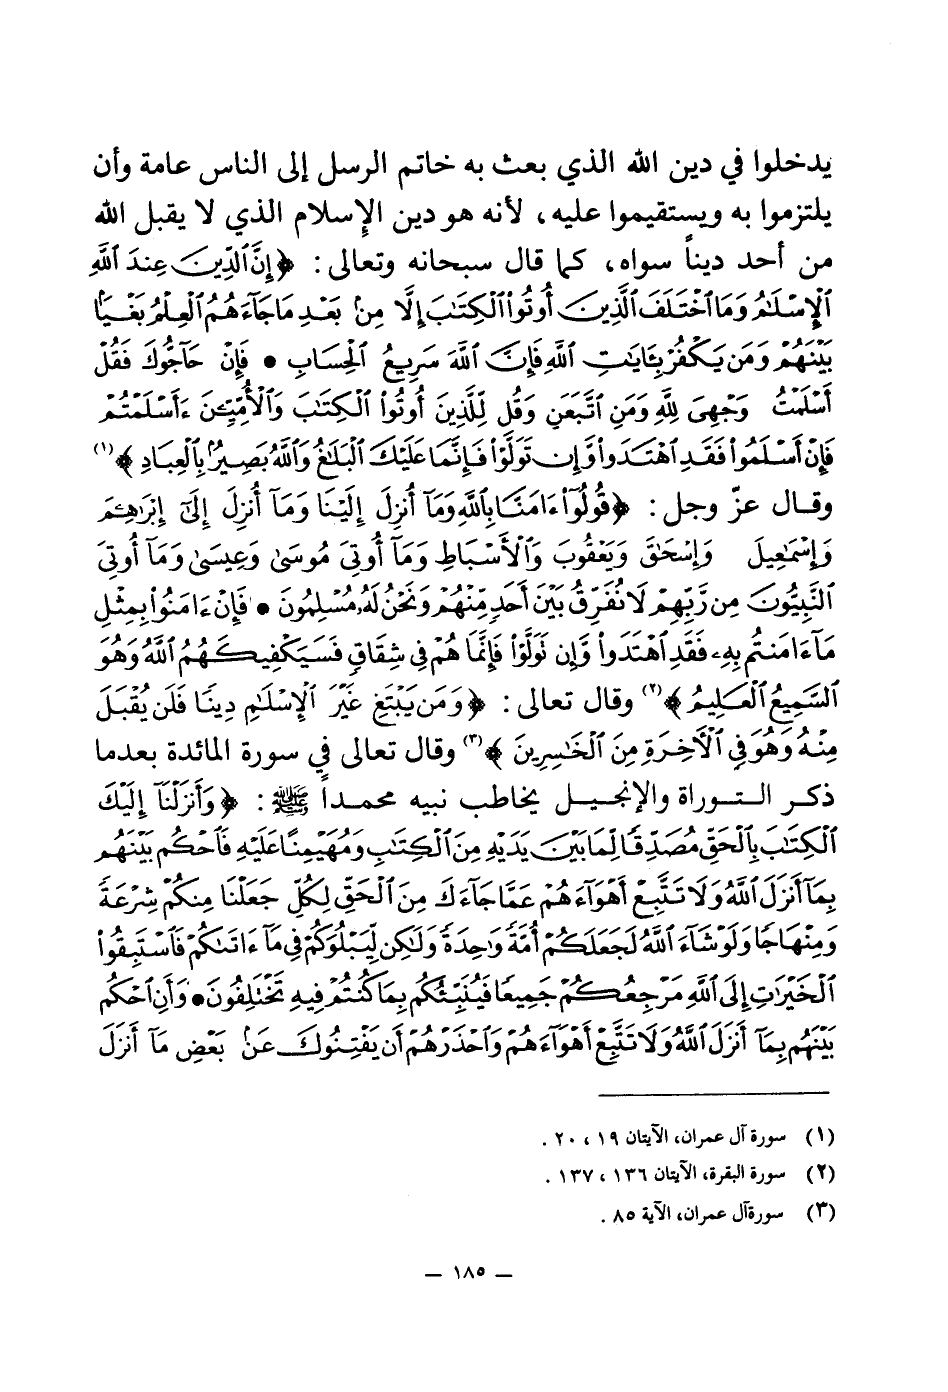 يدخلوا في دين الله الذي بعث به خاتم الرسل إلى الناس عامة وأن
يلتزموا به ويستقيموا عليه، لأنه هو دين الإسلام الذي لا يقبل الله
من أحد ديناً سواه، كما قال سبحانه وتعالى : ﴿إِنَّ ٱلدِّينَ عِندَ ٱللَّهِ
ٱلْإِسْلَٰمُ وَمَا ٱخْتَلَفَ ٱلَّذِينَ أُوتُوا۟ ٱلْكِتَٰبَ إِلَّا مِنۢ بَعْدِ مَا جَآءَهُمُ ٱلْعِلْمُ بَغْيًۢا
بَيْنَهُمْ وَمَن يَكْفُرْ بِـَٔايَٰتِ ٱللَّهِ فَإِنَّ ٱللَّهَ سَرِيعُ ٱلْحِسَابِ • فَإِنْ حَآجُّوكَ فَقُلْ
أَسْلَمْتُ وَجْهِىَ لِلَّهِ وَمَنِ ٱتَّبَعَنِ وَقُل لِّلَّذِينَ أُوتُوا۟ ٱلْكِتَٰبَ وَٱلْأُمِّيِّـۧنَ ءَأَسْلَمْتُمْ
فَإِنْ أَسْلَمُوا۟ فَقَدِ ٱهْتَدَوا۟ وَّإِن تَوَلَّوْا۟ فَإِنَّمَا عَلَيْكَ ٱلْبَلَٰغُ وَٱللَّهُ بَصِيرٌۢ بِٱلْعِبَادِ﴾(١)
وقال عزّ وجل : ﴿قُولُوٓا۟ ءَامَنَّا بِٱللَّهِ وَمَآ أُنزِلَ إِلَيْنَا وَمَآ أُنزِلَ إِلَىٰٓ إِبْرَٰهِـۧمَ
وَإِسْمَٰعِيلَ وَإِسْحَٰقَ وَيَعْقُوبَ وَٱلْأَسْبَاطِ وَمَآ أُوتِىَ مُوسَىٰ وَعِيسَىٰ وَمَآ أُوتِىَ
ٱلنَّبِيُّونَ مِن رَّبِّهِمْ لَا نُفَرِّقُ بَيْنَ أَحَدٍ مِّنْهُمْ وَنَحْنُ لَهُۥ مُسْلِمُونَ • فَإِنْ ءَامَنُوا۟ بِمِثْلِ
مَآ ءَامَنتُم بِهِۦ فَقَدِ ٱهْتَدَوا۟ وَّإِن تَوَلَّوْا۟ فَإِنَّمَا هُمْ فِى شِقَاقٍ فَسَيَكْفِيكَهُمُ ٱللَّهُ وَهُوَ
ٱلسَّمِيعُ ٱلْعَلِيمُ﴾(٢) وقال تعالى : ﴿وَمَن يَبْتَغِ غَيْرَ ٱلْإِسْلَٰمِ دِينًا فَلَن يُقْبَلَ
مِنْهُ وَهُوَ فِى ٱلْأَخِرَةِ مِنَ ٱلْخَٰسِرِينَ﴾(٣) وقال تعالى في سورة المائدة بعدما
ذكر التوراة والإنجيل يخاطب نبيه محمداً ﷺ : ﴿وَأَنزَلْنَآ إِلَيْكَ
ٱلْكِتَٰبَ بِٱلْحَقِّ مُصَدِّقًا لِّمَا بَيْنَ يَدَيْهِ مِنَ ٱلْكِتَٰبِ وَمُهَيْمِنًا عَلَيْهِ فَٱحْكُم بَيْنَهُم
بِمَآ أَنزَلَ ٱللَّهُ وَلَا تَتَّبِعْ أَهْوَآءَهُمْ عَمَّا جَآءَكَ مِنَ ٱلْحَقِّ لِكُلٍّ جَعَلْنَا مِنكُمْ شِرْعَةً
وَمِنْهَاجًا وَلَوْ شَآءَ ٱللَّهُ لَجَعَلَكُمْ أُمَّةً وَٰحِدَةً وَلَٰكِن لِّيَبْلُوَكُمْ فِى مَآ ءَاتَىٰكُمْ فَٱسْتَبِقُوا۟
ٱلْخَيْرَٰتِ إِلَى ٱللَّهِ مَرْجِعُكُمْ جَمِيعًا فَيُنَبِّئُكُم بِمَا كُنتُمْ فِيهِ تَخْتَلِفُونَ • وَأَنِ ٱحْكُم
بَيْنَهُم بِمَآ أَنزَلَ ٱللَّهُ وَلَا تَتَّبِعْ أَهْوَآءَهُمْ وَٱحْذَرْهُمْ أَن يَفْتِنُوكَ عَنۢ بَعْضِ مَآ أَنزَلَ
(١) سورة آل عمران، الآيتان ١٩ ، ٢٠ .
(٢) سورة البقرة، الآيتان ١٣٦ ، ١٣٧ .
(٣) سورةآل عمران، الآية ٨٥ .
— ١٨٥ —